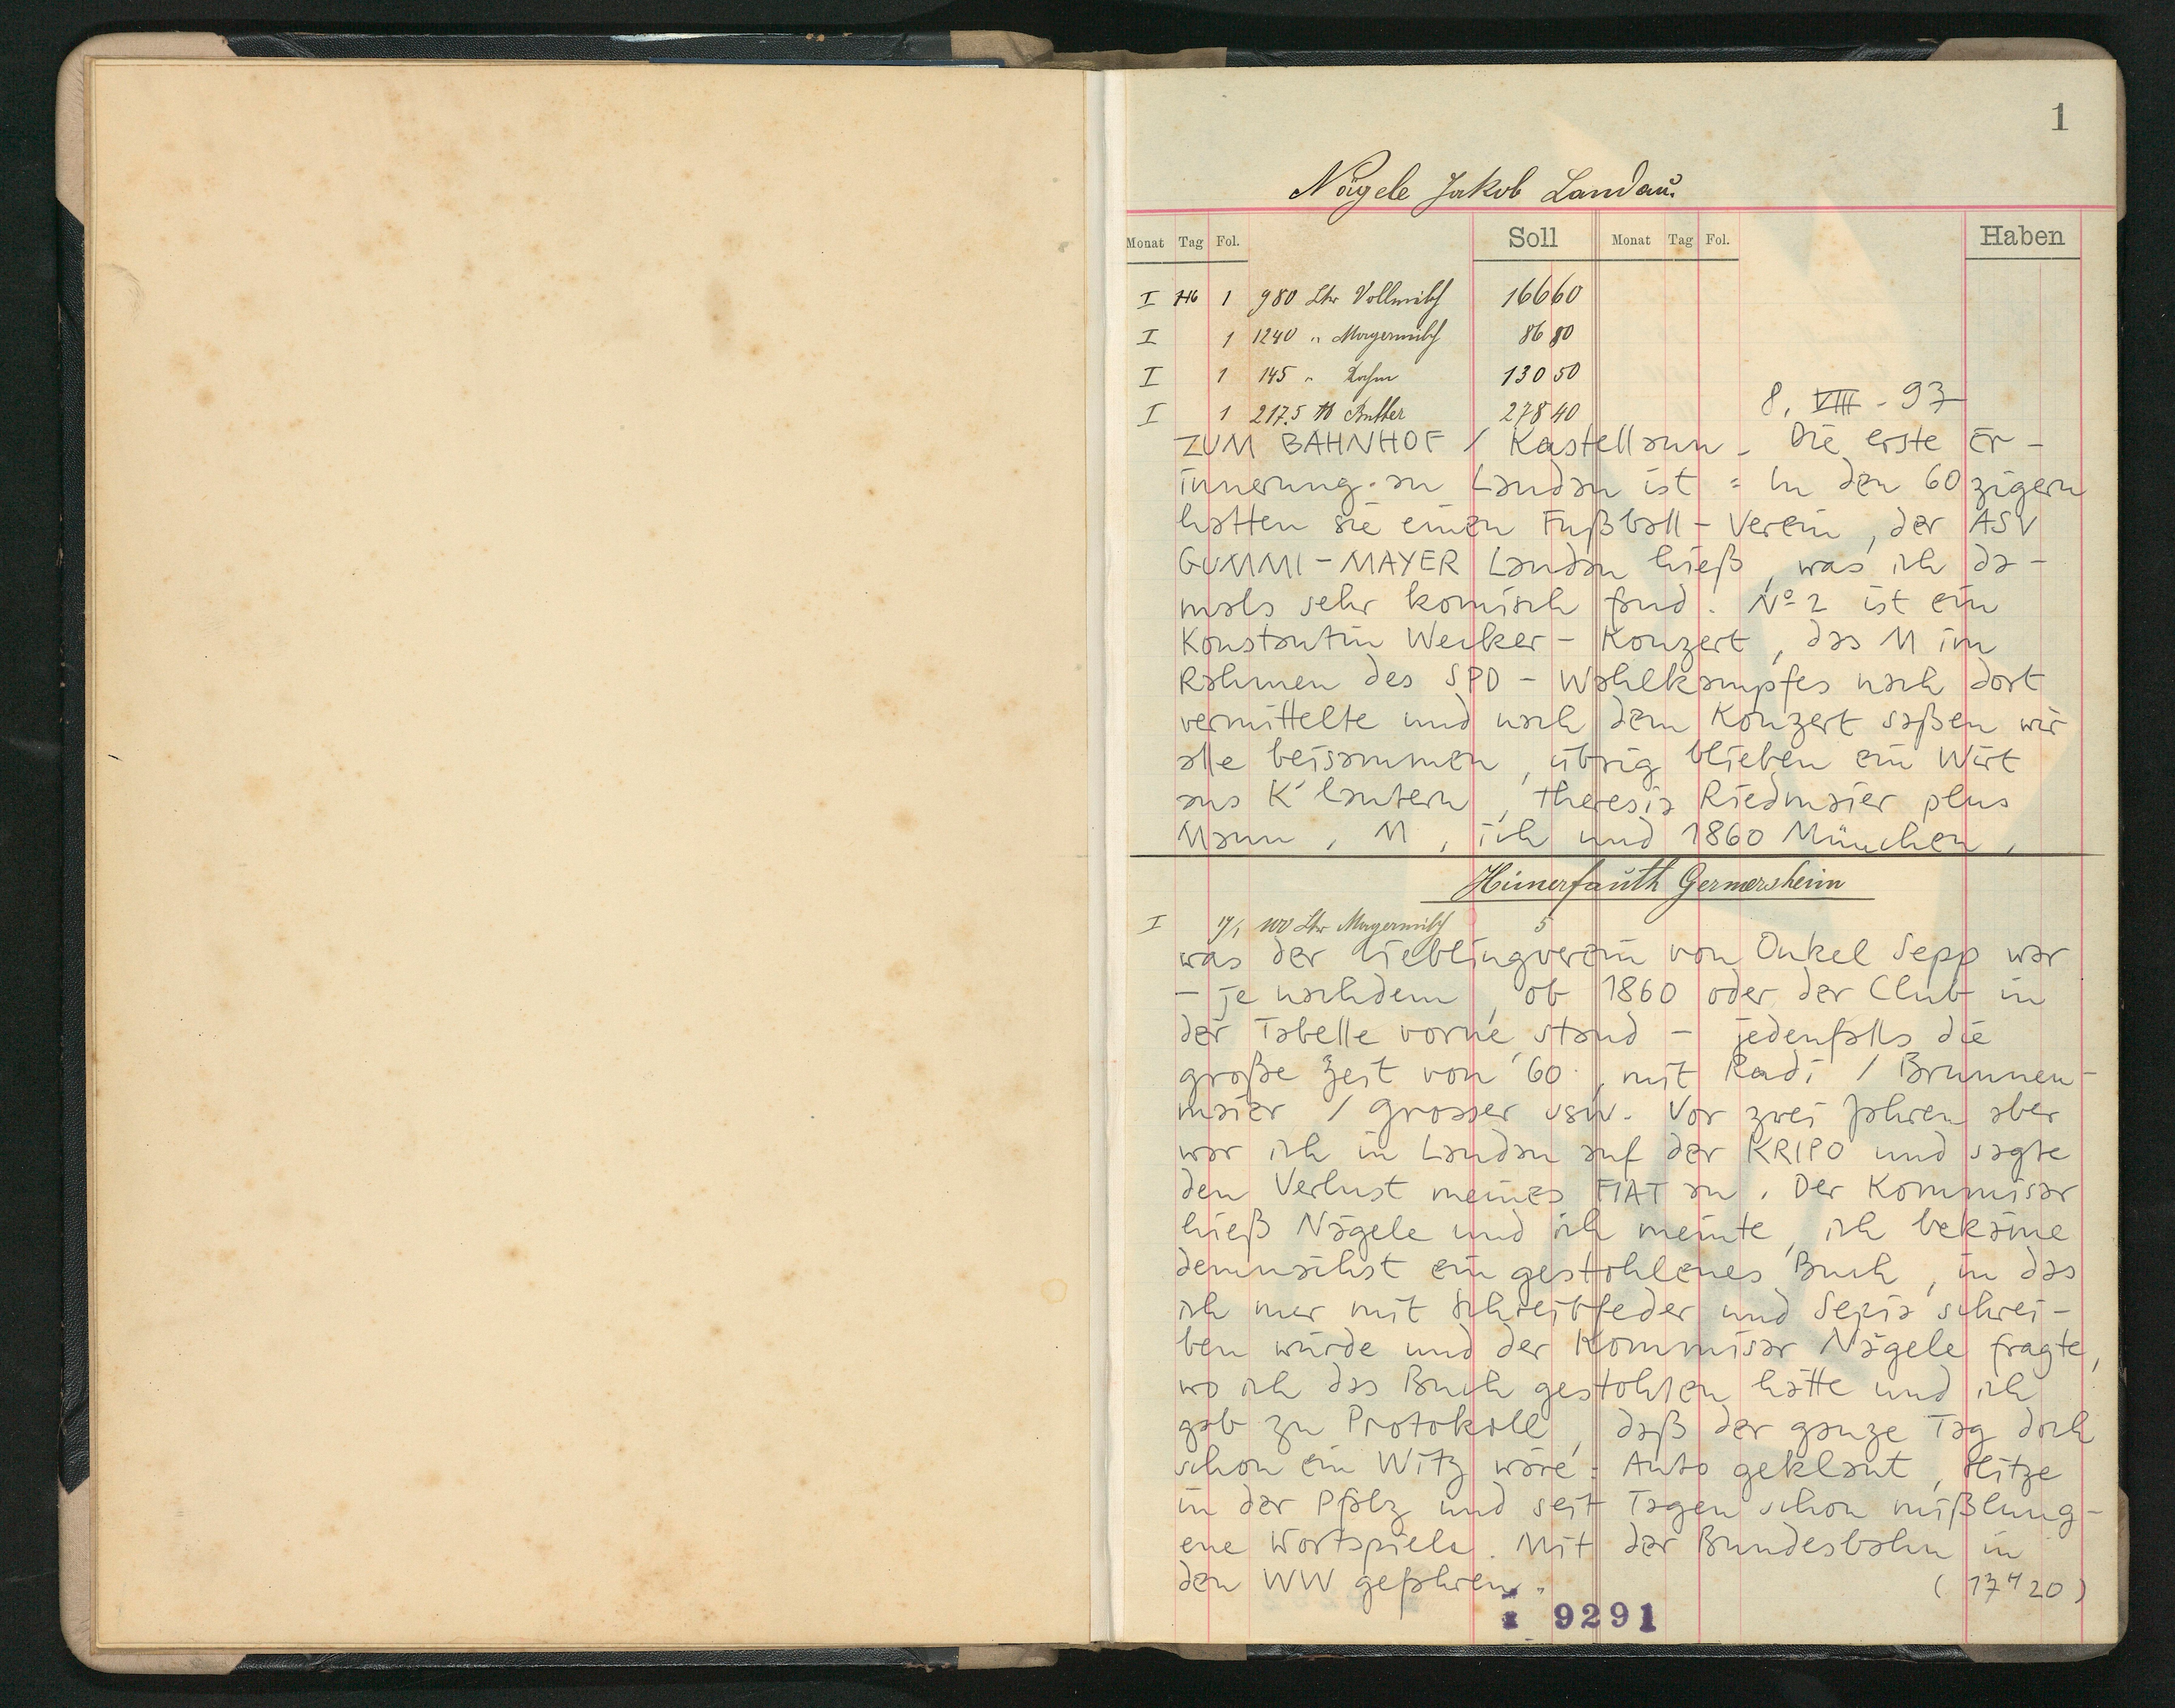 1
Nägele Jakob Landau.
Monat Tag Fol. Soll Monat Tag Fol. Haben
I 1 980 Ltr Vollmilch 166 60
I 1 1240 " Magermilch 86 80
I 1 145 " Rahm 130 50
I 1 217.5 ℔ Butter 278 40
8. VIII - 93
ZUM BAHNHOF / Kastellaun - Die erste Er-
innerung an Landau ist : In den 60zigern
hatten sie einen Fußball-Verein, der ASV
GUMMI-MAYER Landau hieß, was ich da-
mals sehr komisch fand. Nº 2 ist ein
Konstantin Wecker-Konzert, das M im
Rahmen des SPD-Wahlkampfes nach dort
vermittelte und nach dem Konzert saßen wir
alle beisammen, übrig blieben ein Wirt
aus K'lautern, Theresia Riedmaier plus
Mann, M, ich und 1860 München,
Hünerfauth Germersheim
I 17/1 100 Ltr Magermilch 5
was der Lieblingverein von Onkel Sepp war
- je nachdem, ob 1860 oder der Club in
der Tabelle vorne stand - jedenfalls die
große Zeit von '60, mit Radi / Brunnen-
maier / Grosser usw. Vor zwei Jahren aber
war ich in Landau auf der KRIPO und sagte
den Verlust meines FIAT an. Der Kommisar
hieß Nägele und ich meinte, ich bekäme
demnächst ein gestohlenes Buch, in das
ich nur mit Schreibfeder und Sepia schrei-
ben würde und der Kommisar Nägele fragte,
wo ich das Buch gestohlen hätte und ich
gab zu Protokoll, daß der ganze Tag doch
schon ein Witz wäre: Auto geklaut, Hitze
in der Pfalz und seit Tagen schon mißlung-
ene Wortspiele. Mit der Bundesbahn in
den WW gefahren.
(17 H 20)
9291